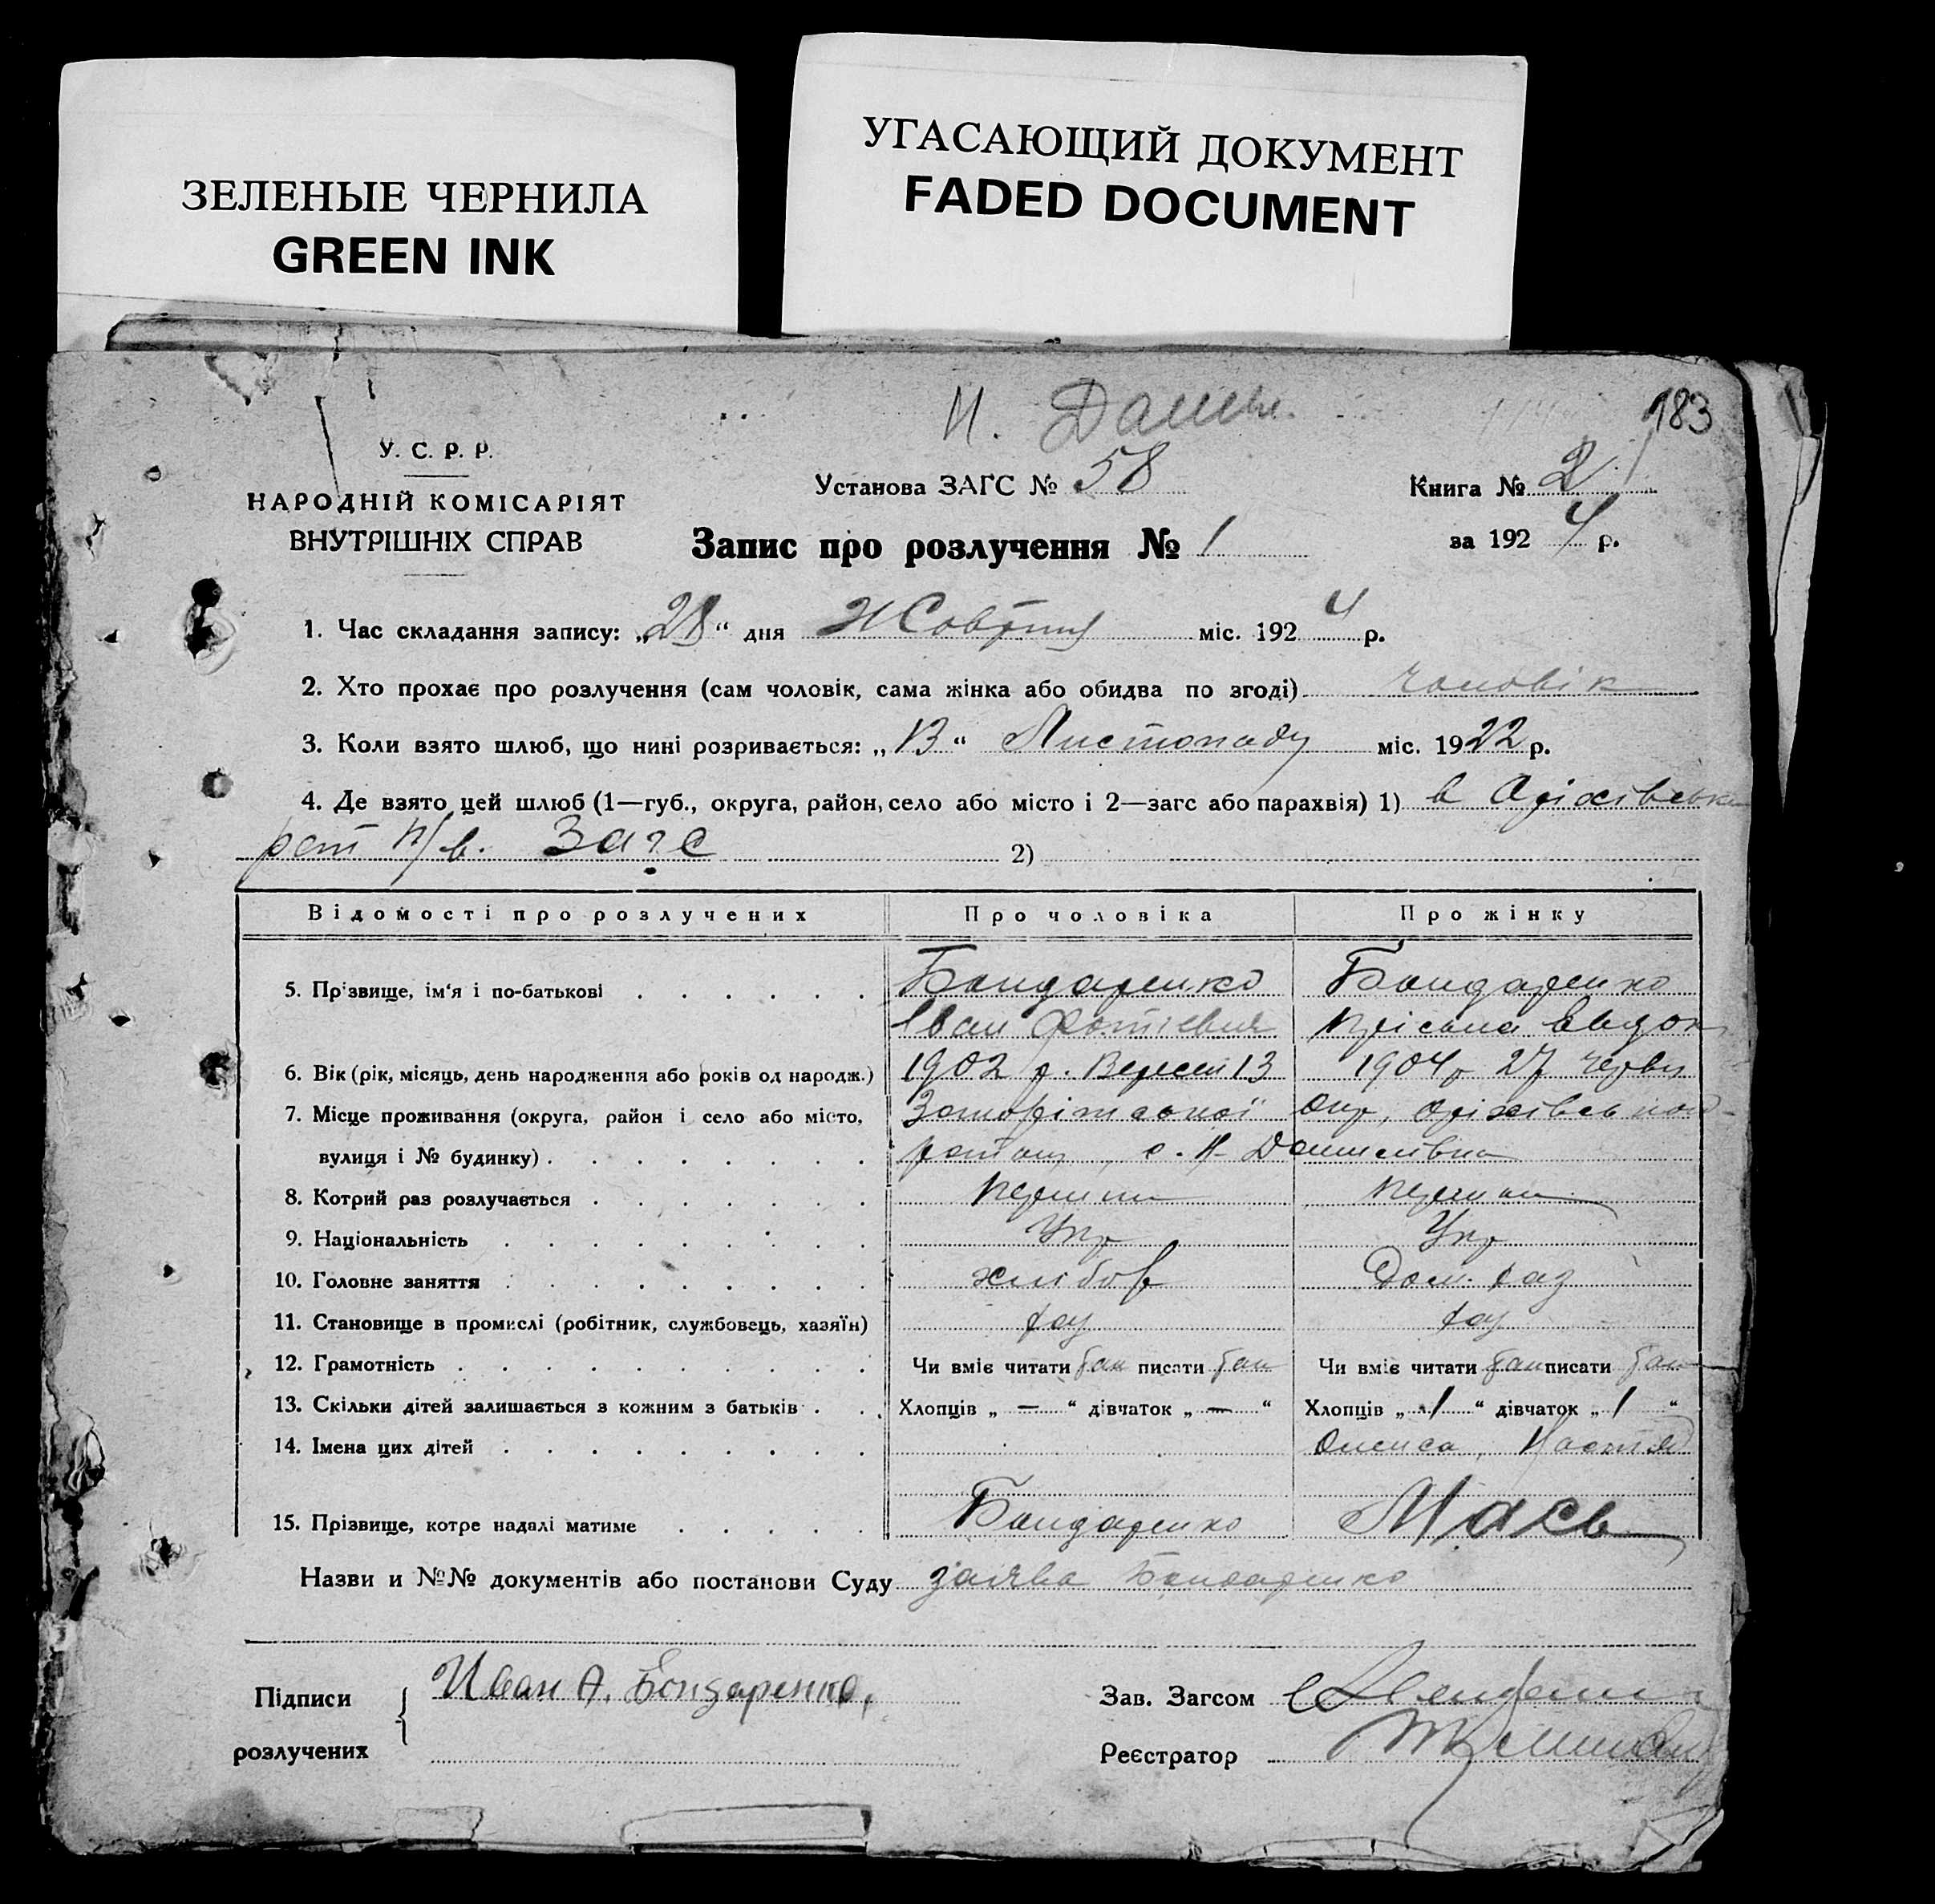 ЗЕЛЕНЫЕ ЧЕРНИЛА
GREEN INK
УГАСАЮЩИЙ ДОКУМЕНТ
FADED DOCUMENT
Н. Данил.
183
У. С. Р. Р.
НАРОДНІЙ КОМІСАРІЯТ
ВНУТРІШНІХ СПРАВ
Установа ЗАГС № 58
Книга № 2
за 1924 р.
Запис про розлучення № 1
1. Час складання запису: „28“ дня Жовтня міс. 1924 р.
2. Хто прохає про розлучення (сам чоловік, сама жінка або обидва по згоді) чоловік
3. Коли взято шлюб, що нині розривається: „13“ Листопаду міс. 1922 р.
4. Де взято цей шлюб (1—губ., округа, район, село або місто і 2—загс або парахвія) 1) в Оріхівськ
Загс 2)
Відомості про розлучених Про чоловіка Про жінку
5. Прізвище, ім'я і по-батькові Бондаренко Бондаренко
Іван Фотієвич
6. Вік (рік, місяць, день народження або років од народж.) 1902 р. Вересня 13 1904 р 27 Червн
7. Місце проживання (округа, район і село або місто, Запоріжської Окр, Оріхівськ
вулиця і № будинку) с. Н- Данилівка
8. Котрий раз розлучається первий первий
9. Національність Укр Укр
10. Головне заняття хлібор Дом.
11. Становище в промислі (робітник, службовець, хазяїн)
12. Грамотність Чи вміє читати так писати так Чи вміє читати так писати так
13. Скільки дітей залишається з кожним з батьків Хлопців „ — “ дівчаток „ — “ Хлопців „ 1 “ дівчаток „ 1 “
14. Імена цих дітей
15. Прізвище, котре надалі матиме Бондаренко Мась
Назви и №№ документів або постанови Суду заява Бондаренко
Підписи
розлучених
Иван Ф. Бондаренко,
Зав. Загсом
Реєстратор